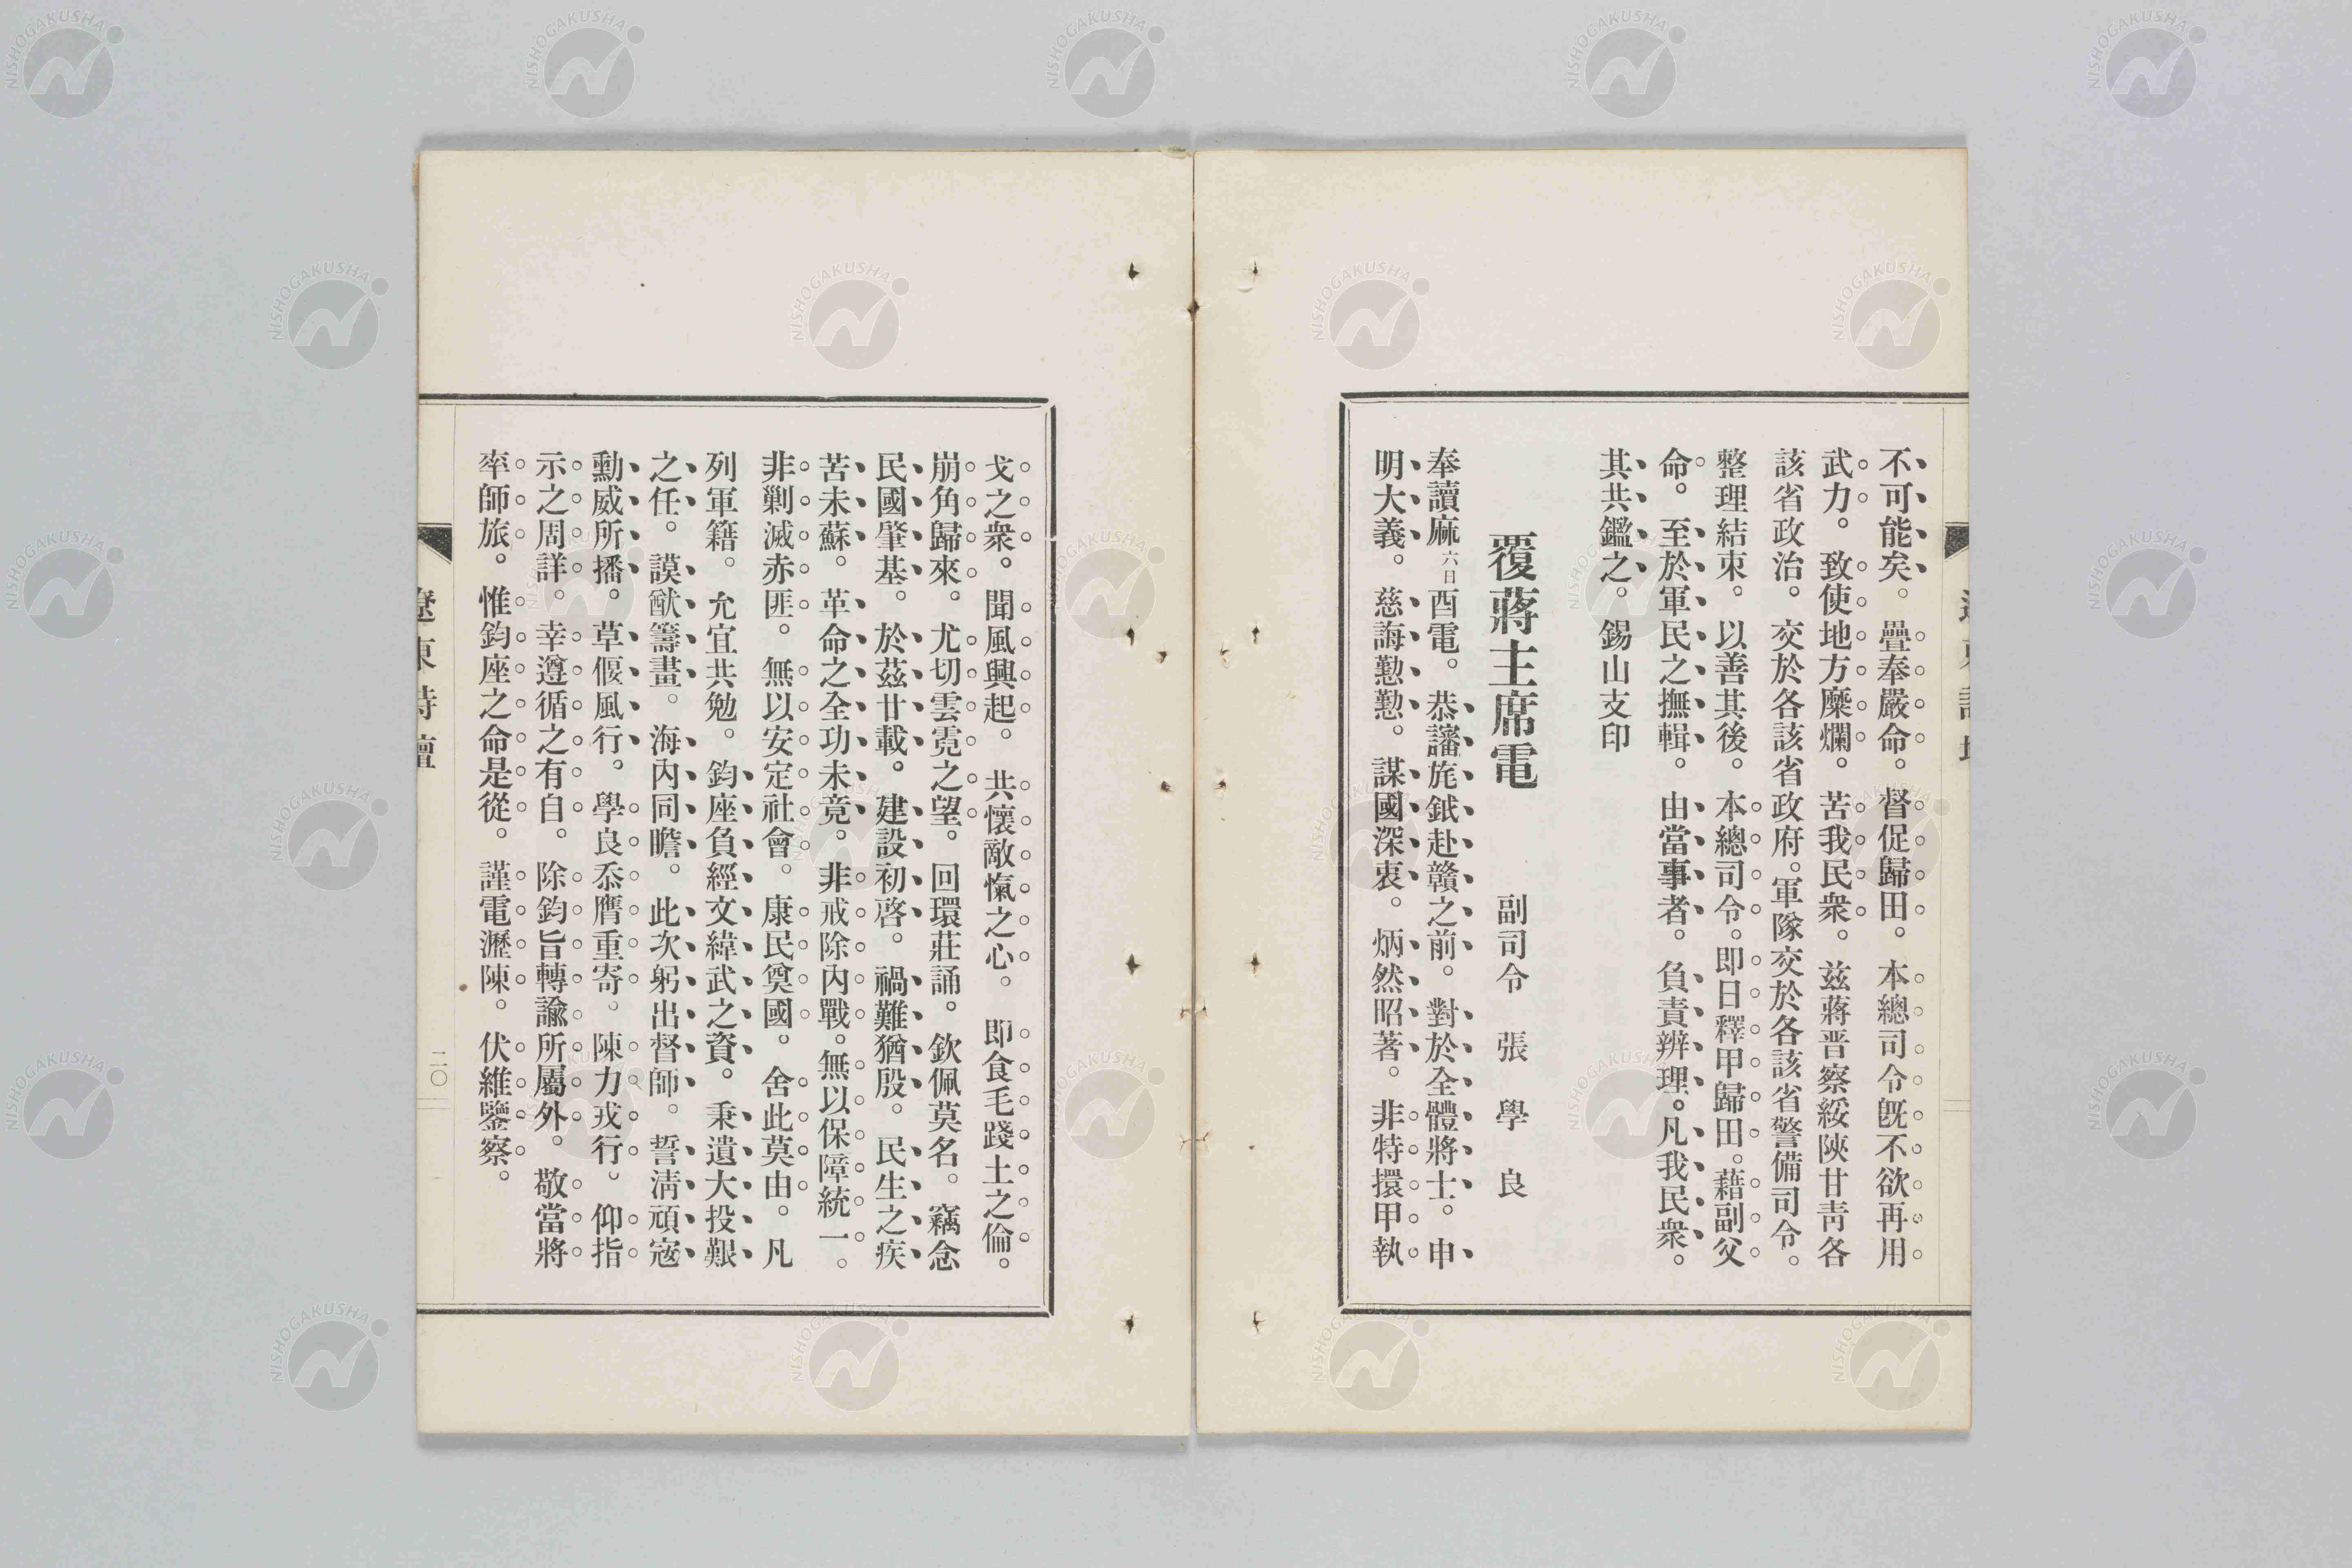 不可能矣。疊奉嚴命。督促歸田。本總司令旣不欲再用
武力。致使地方糜爛。苦我民衆。茲蔣晋察綏陝甘靑各
該省政治。交於各該省政府。軍隊交於各該省警備司令。
整理結束。以善其後。本總司令。即日釋甲歸田。藉副父
命。至於軍民之撫輯。由當事者。負責辦理。凡我民衆。
其共鑑之。錫山支印
覆蔣主席電 副司令 張學良
奉讀麻六日酉電。恭讅旄鉞赴贛之前。對於全體將士。申
明大義。慈誨懃懃。謀國深衷。炳然昭著。非特擐甲執
戈之衆。聞風興起。共懷敵愾之心。即食毛踐土之倫。
崩角歸來。尤切雲霓之望。回環莊誦。欽佩莫名。竊念
民國肇基。於茲廿載。建設初啓。禍難猶殷。民生之疾
苦未蘇。革命之全功未竟。非戒除內戰。無以保障統一。
非剿滅赤匪。無以安定社會。康民奠國。舍此莫由。凡
列軍籍。允宜共勉。鈞座負經文緯武之資。秉遺大投艱
之任。謨猷籌畫。海內同瞻。此次躬出督師。誓淸頑寇
勳威所播。草偃風行。學良忝膺重寄。陳力戎行。仰指
示之周詳。幸遵循之有自。除鈞旨轉諭所屬外。敬當將
率師旅。惟鈞座之命是從。謹電瀝陳。伏維鑒察。
遼東詩壇
二〇
NISHOGAKUSHA